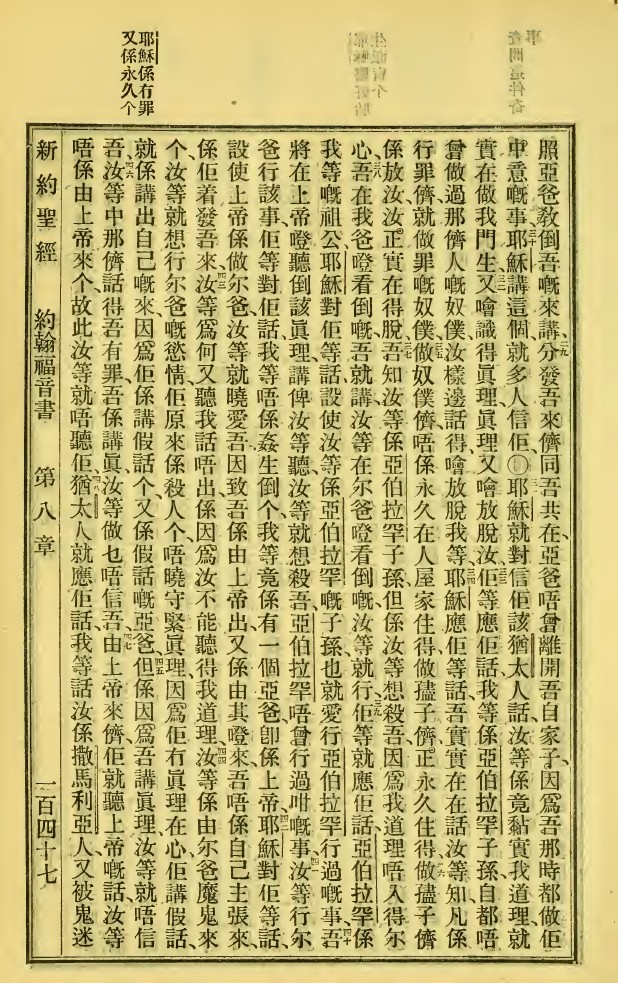 耶穌係冇罪
又係永久个
照亞爸敎倒吾嘅來講二九分發吾來儕同吾共在亞爸唔曾離開吾自家子因爲吾那時都做佢
中意嘅事三十耶穌講這個就多人信佢〇三一耶穌就對信佢該猶太人話汝等係竟黏實我道理就
實在做我門生三二又噲識得眞理眞理又噲放脫汝三三佢等應佢話我等係亞伯拉罕子孫自都唔
曾做過那儕人嘅奴僕汝樣邊話得噲放脫我等三四耶穌應佢等話吾實實在在話汝等知凡係
行罪儕就做罪嘅奴僕三五做奴僕儕唔係永久在人屋家住得做孻子儕正永久住得三六做孻子儕
係放汝汝正實在得脫三七吾知汝等係亞伯拉罕子孫但係汝等想殺吾因爲我道理唔入得尔
心三八吾在我爸噔看倒嘅吾就講汝等在尔爸噔看倒嘅汝等就行三九佢等就應佢話亞伯拉罕係
我等嘅祖公耶穌對佢等話設使汝等係亞伯拉罕嘅子孫也就愛行亞伯拉罕行過嘅事四十吾
將在上帝噔聽倒該眞理講俾汝等聽汝等就想殺吾亞伯拉罕唔曾行過咁嘅事四一汝等行尔
爸行該事佢等對佢話我等唔係姦生倒个我等竟係有一個亞爸卽係上帝四二耶穌對佢等話
設使上帝係做尔爸汝等就曉愛吾因致吾係由上帝出又係由其噔來吾唔係自己主張來
係佢着發吾來四三汝等爲何又聽我話唔出係因爲汝不能聽得我道理四四汝等係由尔爸魔鬼來
个汝等就想行尔爸嘅慾情佢原來係殺人个唔曉守緊眞理因爲佢冇眞理在心佢講假話
就係講出自己嘅來因爲佢係講假話个又係假話嘅亞爸四五但係因爲吾講眞理汝等就唔信
吾四六汝等中那儕話得吾有罪吾係講眞汝等做乜唔信吾四七由上帝來儕佢就聽上帝嘅話汝等
唔係由上帝來个故此汝等就唔聽佢四八猶太人就應佢話我等話汝係撒馬利亞人又被鬼迷
新約聖經 約翰福音書 第八章 一百四十七